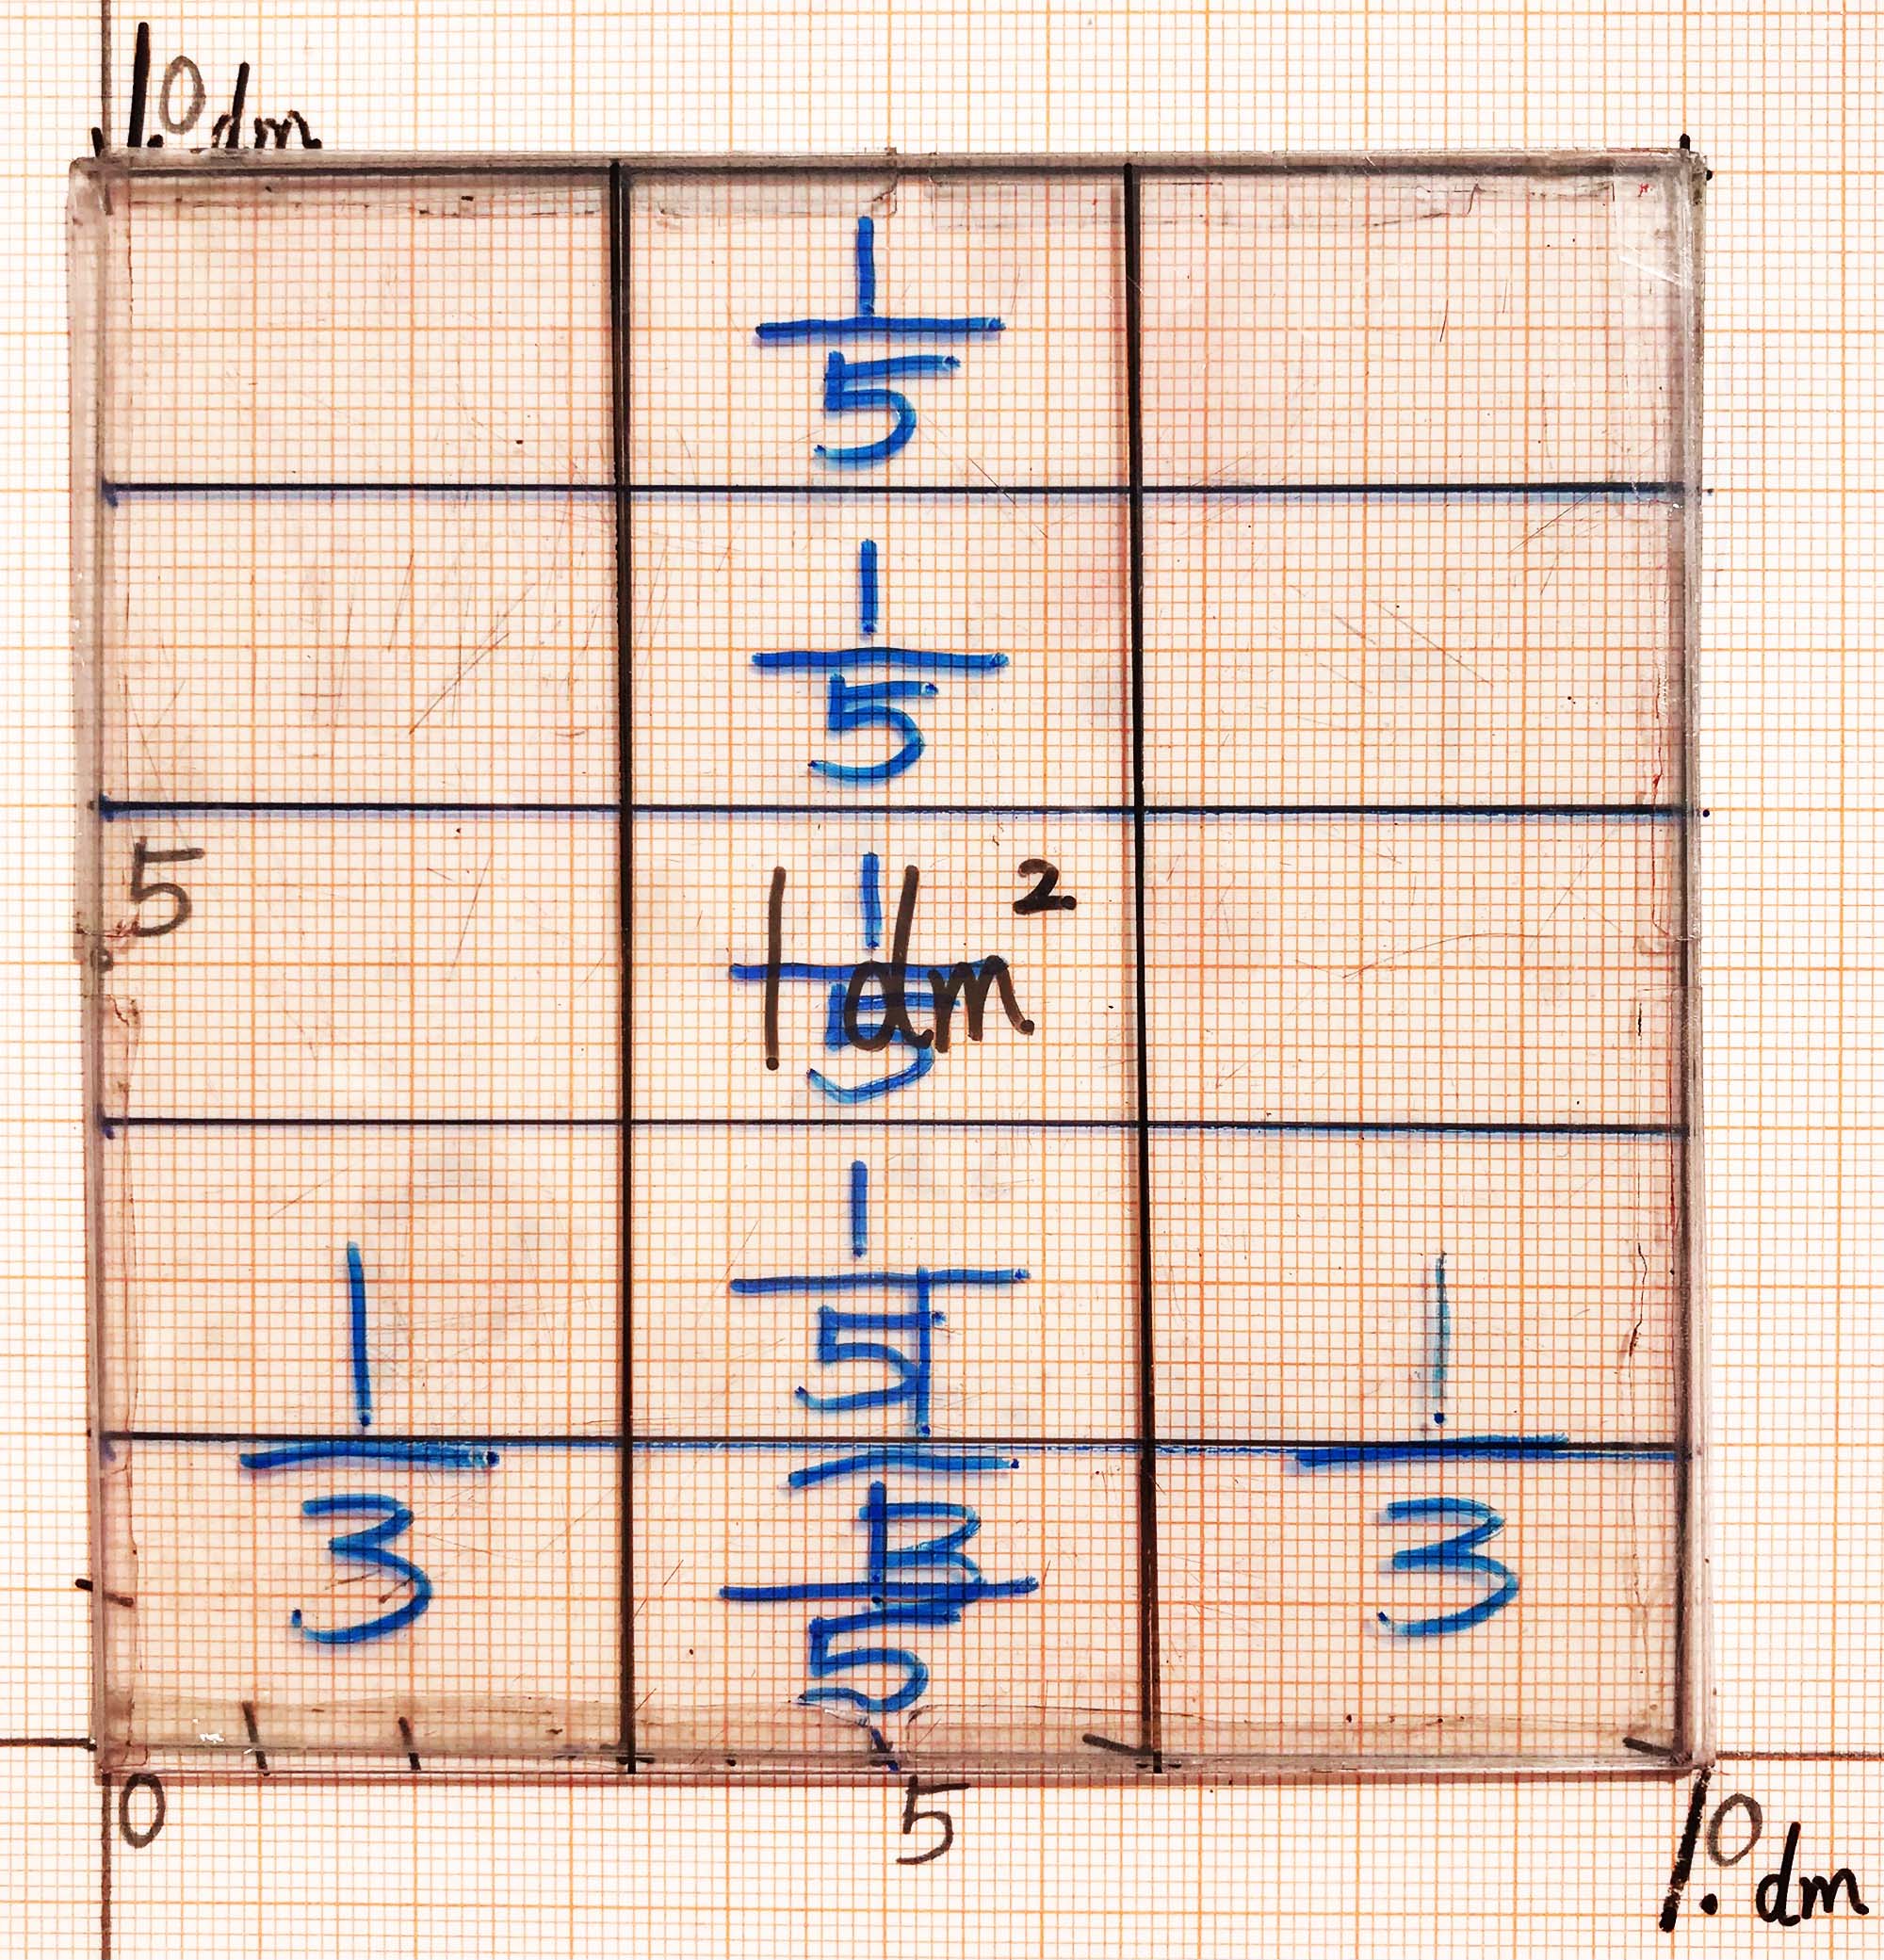 1.0 dm
1/5
1/5
5
1/5
1 dm²
1/5
1/3 1/3 1/3
1/5
0 5 1.0 dm